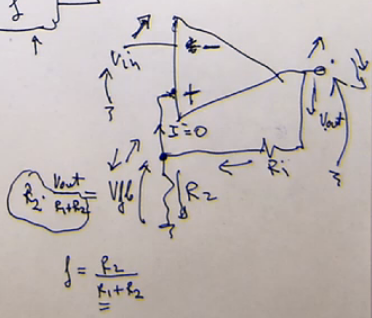 f
Vin
-
+
I=0
Vout
Ri
R2
R2 · Vout / R1+R2 = Vfb
f = R2 / R1+R2